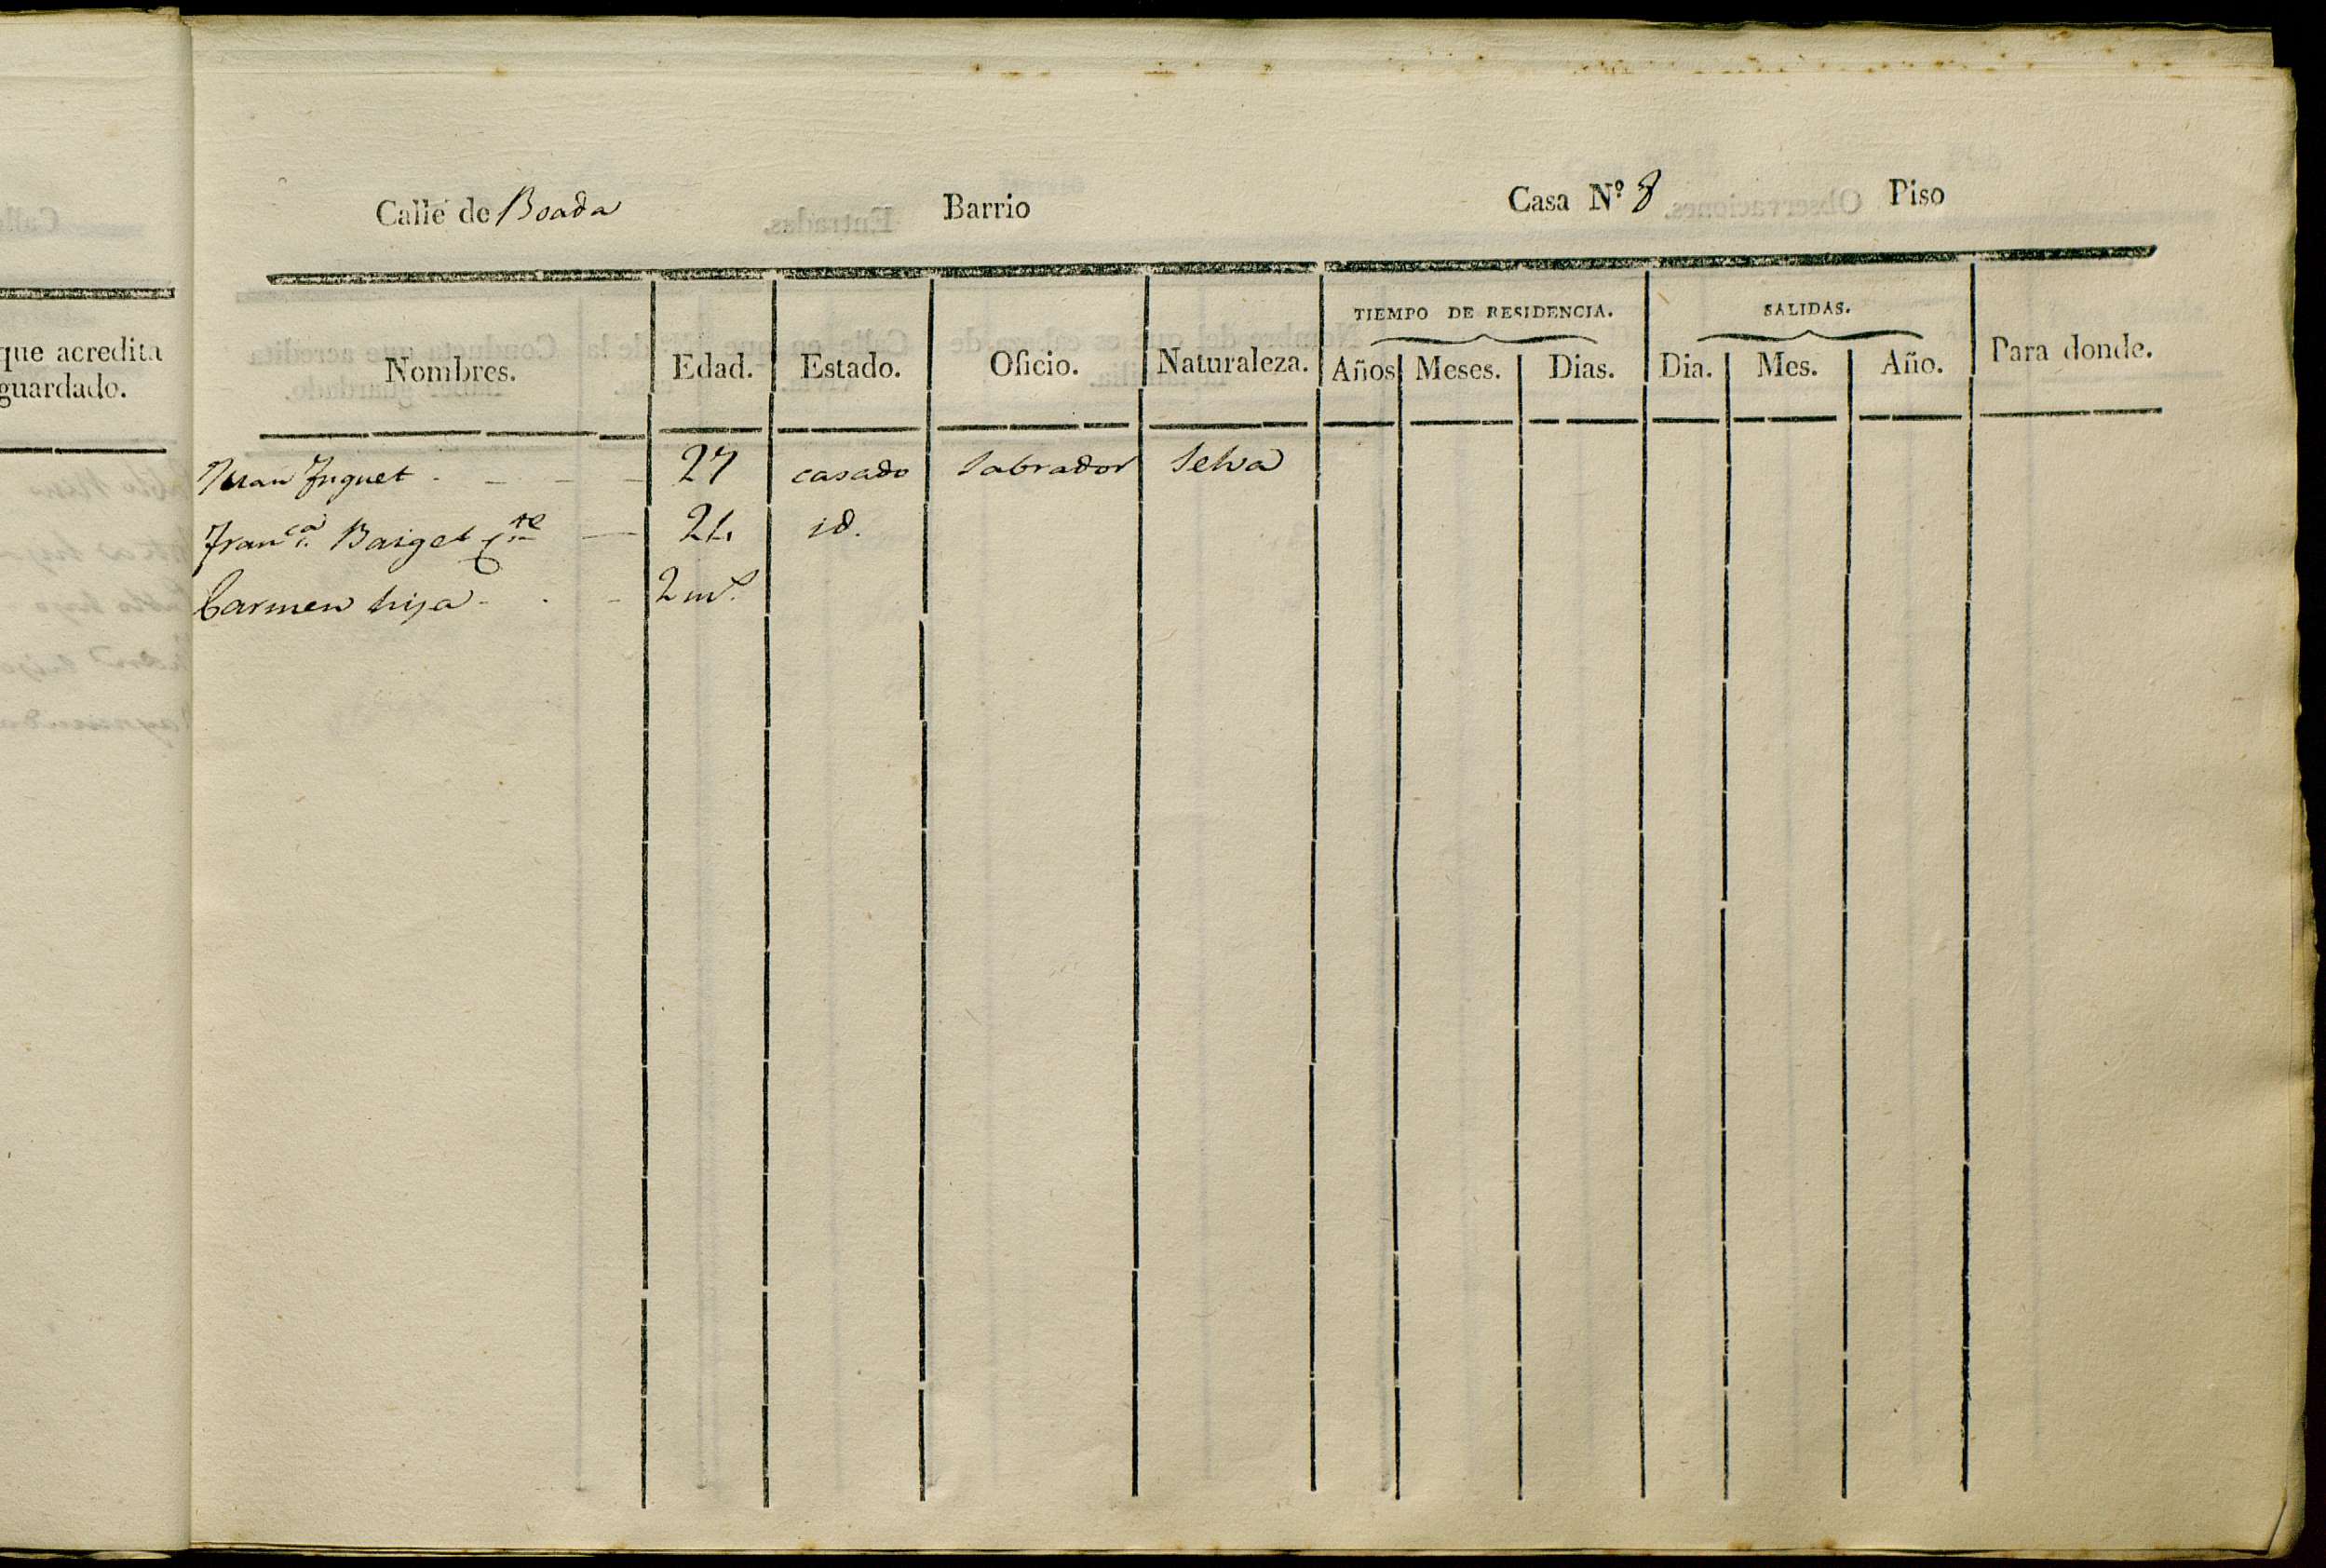 que acredita
guardado.
Calle de Boada Barrio Casa N.º 8 Piso
TIEMPO DE RESIDENCIA. SALIDAS.
Nombres. Edad. Estado. Oficio. Naturaleza. Años Meses. Dias. Dia. Mes. Año. Para donde.
Juan Juguet 27 casado labrador Selva
Fran.ca Baiget 24 id.
Carmen hija 2 m.s